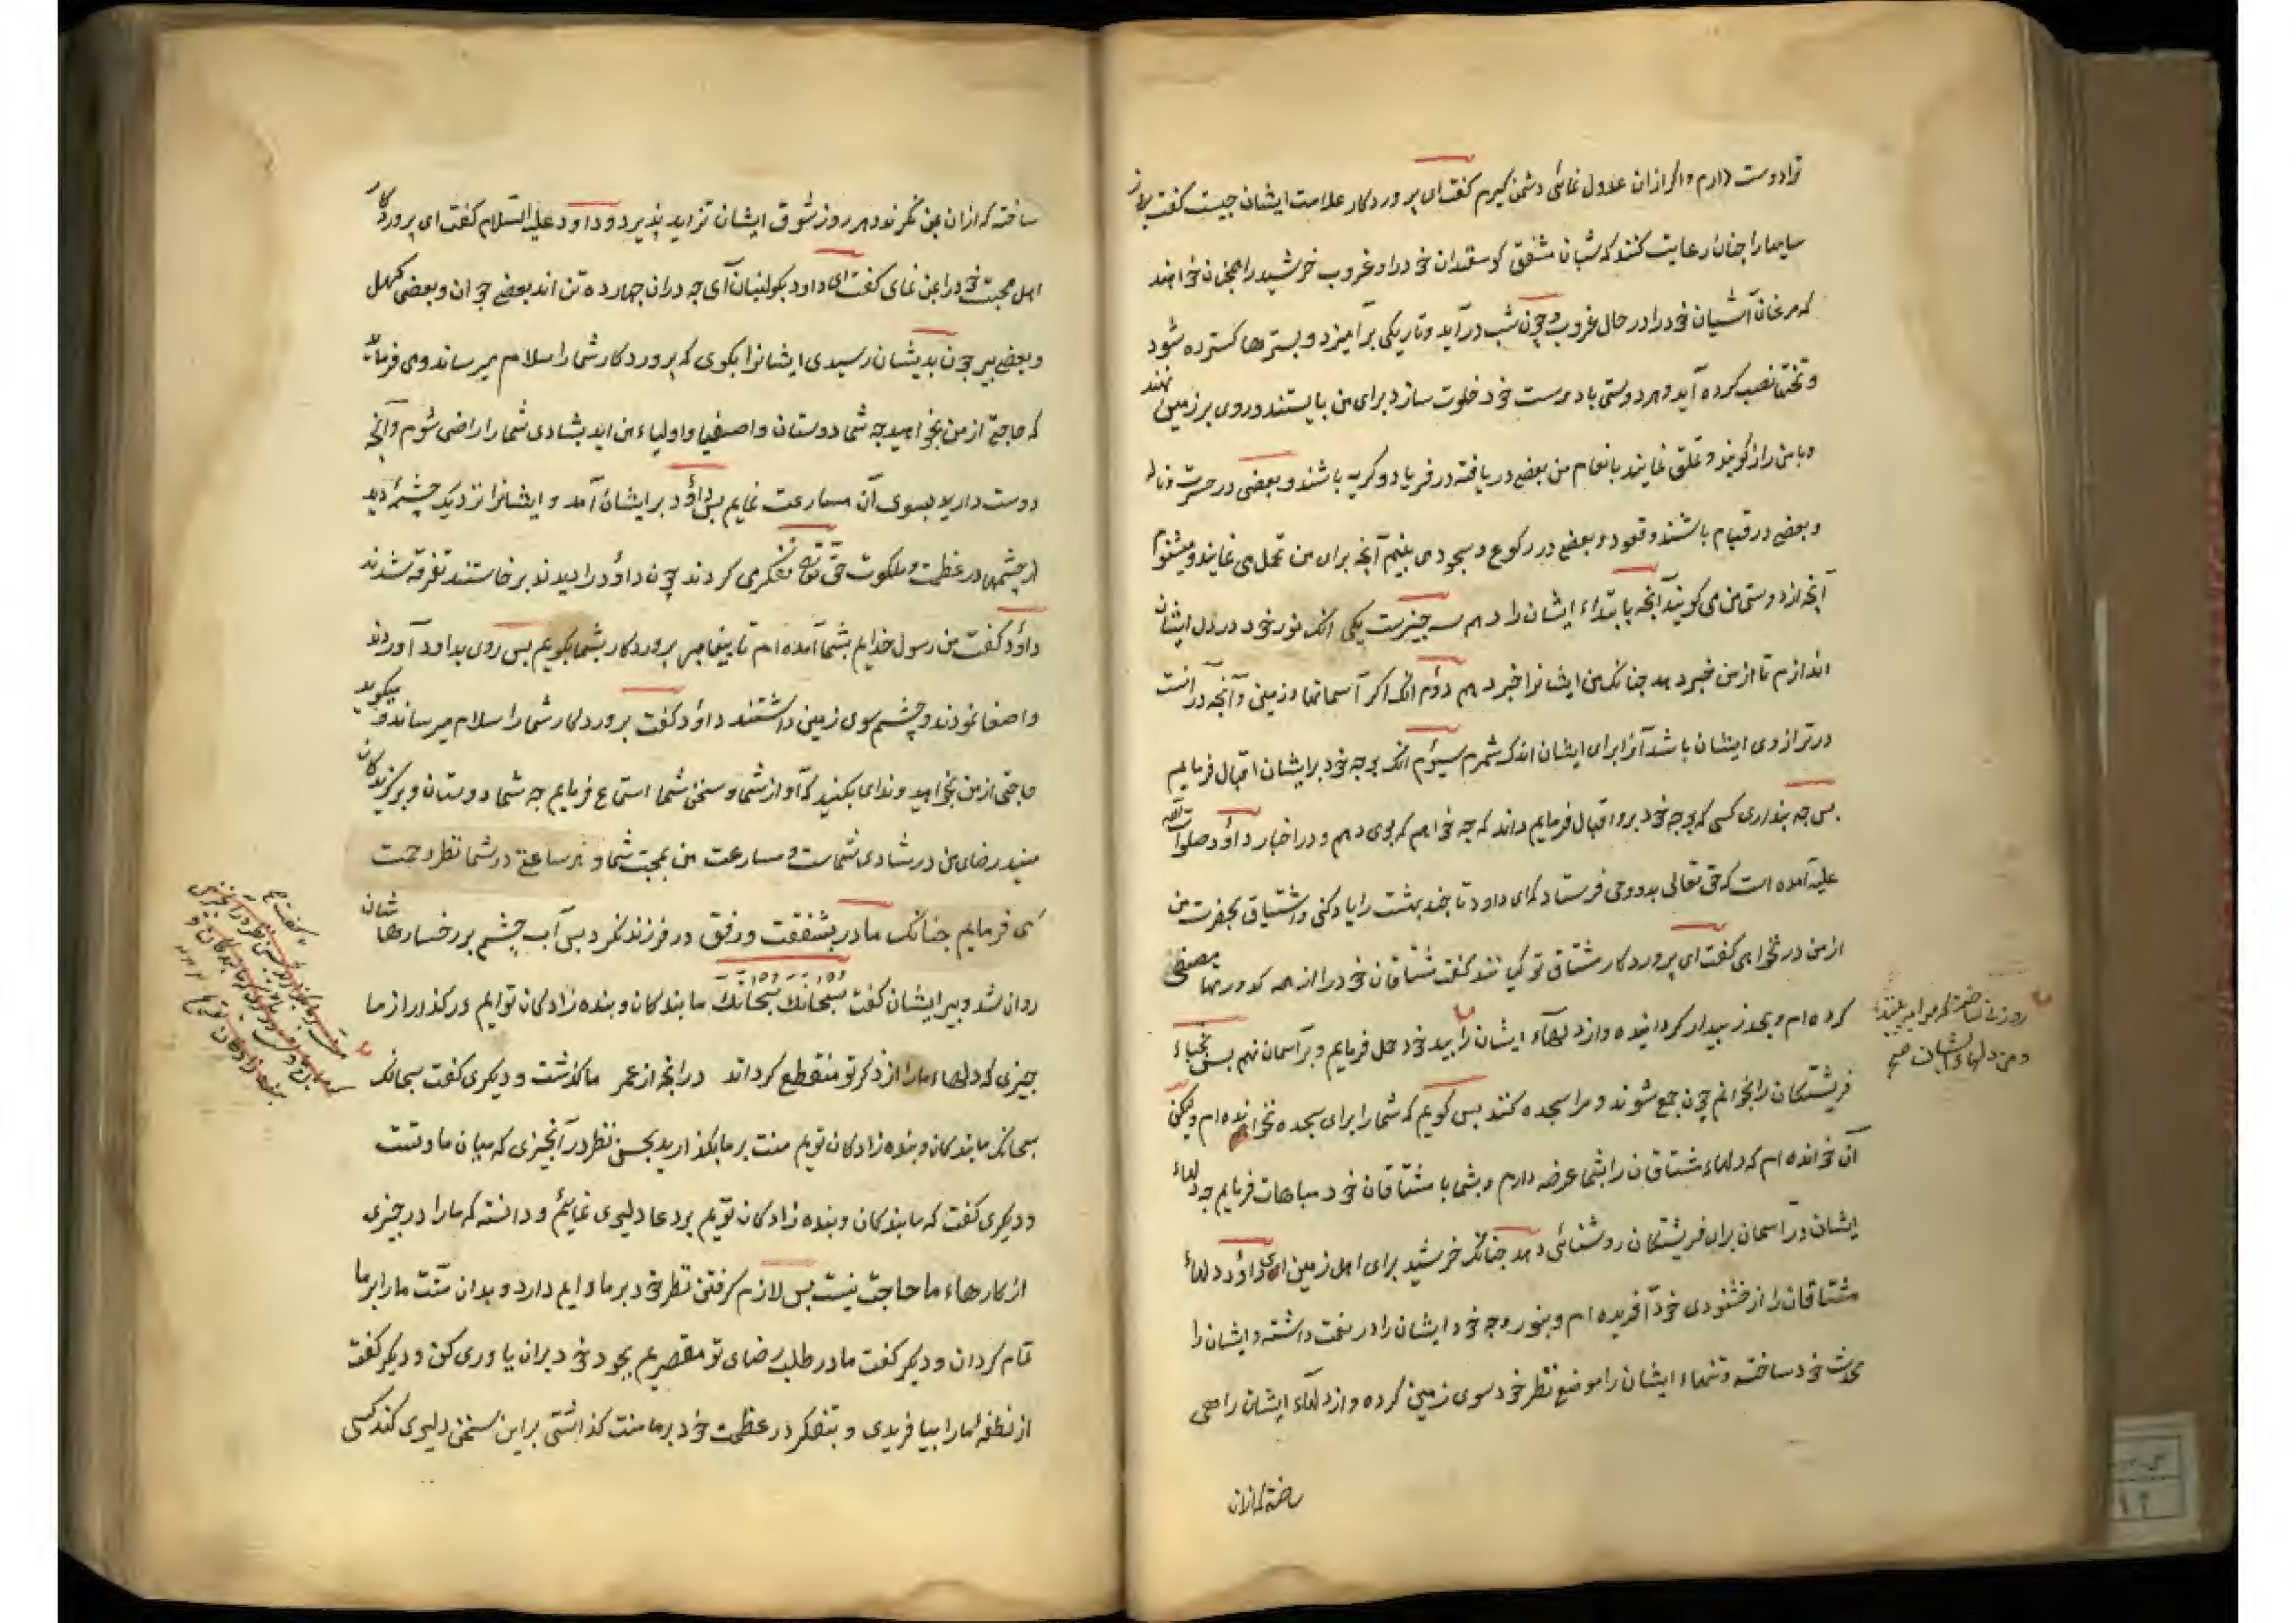 ترا دوست دارم و اگر ازان عدول نمائی دشمن گیرم گفت ای پروردگار علامت ایشان چیست گفت بروز
سایها را چنان رعایت کنند که شبان مشفق گوسفندان خود را و غروب خرشید را همچنان خواهند
که مرغان آشیان خود را در حال غروب و چون شب درآید و تاریکی برآمیزد و بسترها گسترده شود
و تختها نصب کرده آید و هر دوستی با دوست خود خلوت سازد برای من بایستند و روی بر زمین نهند
و با من راز گویند و تملق نمایند بانعام من بعضی دریافته در فریاد و گریه باشند و بعضی در حسرت و ناله
و بعضی در قیام باشند و قعود و بعضی در رکوع و سجود می بینم آنچه برای من تحمل می نمایند و میشنوم
آنچه از دوستی من می گویند آنچه بابتداء ایشان را دهم سه چیزست یکی انک نور خود در دل ایشان
اندازم تا از من خبر دهد چنانک من ایشانرا خبر دهم دوم انک اگر آسمانها و زمین و آنچه درانست
در ترازوی ایشان باشد آنرا برای ایشان اندک شمرم سیوم انک بوجه خود بر ایشان اقبال فرمایم
پس چه پنداری کسی که بوجه خود برو اقبال فرمایم داند که چه خواهم که بوی دهم و در اخبار داؤد صلوات الله
علیه آمده است که حق تعالی بدو وحی فرستاد که ای داود تا چند بهشت را یاد کنی و اشتیاق بحضرت من
از من در نخواهی گفت ای پروردگار مشتاق تو کیانند گفت مشتاقان خود را از همه کدورتها مصفی
کرده ام و بحذر بیدار گردانیده و از دلهاء ایشان را بید خود حمل فرمایم و بر آسمان نهم پس نجباء
فریشتگان را بخوانم چون جمع شوند و مرا سجده کنند پس گویم که شما را برای سجده نخوانده ام ولیکن
آن خوانده ام که دلهاء مشتاقان را بشما عرضه دارم و بشما با مشتاقان خود مباهات فرمایم چه دلهاء
ایشان در آسمان برای فریشتگان روشنائی دهد چنانک خرشید برای اهل زمین ای داؤد دلهاء
مشتاقان را از خشنودی خود آفریده ام و بنور وجه خود ایشان را در نعمت داشته و ایشان را
محدث خود ساخته و تنهاء ایشان را موضع نظر خود سوی زمین کرده و از دلهاء ایشان راهی
ساخته که ازان
روزنی ساختم که مرا به بینند
و من دلهاء ایشان صح
ساخته که ازان بمن نگرند و هر روز شوق ایشان تزاید پذیرد و داود علیه السلام گفت ای پروردگار
اهل محبت خود را بمن نمای گفت ای داود بکوه لبنان آی چه دران چهارده تن اند بعضی جوان و بعضی کهل
و بعضی پیر چون بدیشان رسیدی ایشانرا بگوی که پروردگار شما را سلام میرساند و می فرماید
که حاجتی از من بخواهید چه شما دوستان و اصفیا و اولیاء من اید بشادی شما راضی شوم و آنچه
دوست دارید بسوی آن مسارعت نمایم پس داؤد بر ایشان آمد و ایشانرا نزدیک چشمۀ دید
از چشمها در عظمت و ملکوت حق تعالی تفکر می کردند چون داؤد را دیدند برخاستند تفرقه شدند
داؤد گفت من رسول خدایم بشما آمده ام تا پیغامبر پروردگار بشما بگویم پس روی بداود آوردند
و اصغا نمودند و چشم سوی زمین داشتند داؤد گفت پروردگار شما را سلام میرساند و میگوید
حاجتی از من بخواهید و ندای بکنید که آواز شما و سخن شما استماع فرمایم چه شما دوستان و برگزیدگان
منید رضای من در شادی شماست و مسارعت من بمحبت شما و هر ساعتی در شما نظر رحمت
می فرمایم چنانک مادر بشفقت و رفق در فرزند نگرد پس آب چشم بر رخسارها شان
روان شد و پیر ایشان گفت سبحانک سبحانک ما بندگان و بنده زادگان توایم درگذار از ما
چیزی که دلهاء ما را از ذکر تو منقطع گرداند درانچه از عمر ما گذشت و دیگری گفت سبحانک
سبحانک ما بندگان و بنده زادگان توییم منت بر ما بگذارید بحسن نظر در آنچیزی که میان ما و تست
و دیگری گفت که ما بندگان و بنده زادگان توییم بر دعا دلیری نمایئم و دانسته که ما را در چیزی
از کارهاء ما حاجت نیست پس لازم گرفتن نظر خود بر ما دایم دارد و بدان منت ما را بر ما
تمام گردان و دیگر گفت ما در طلب رضای تو مقصریم بجود خود بران یاوری کن و دیگر گفت
از نطفه ما را بیافریدی و بتفکر در عظمت خود بر ما منت گذاشتی بر این سخن دلیری کند کسی